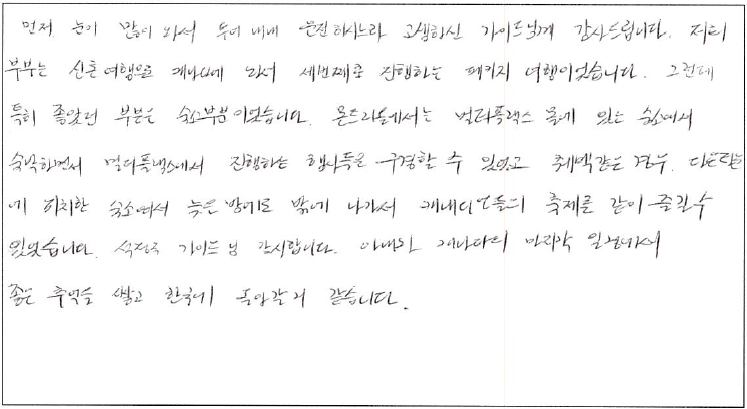 먼저 눈이 많이 와서 투어 내내 운전하시느라 고생하신 가이드님께 감사드립니다. 저희
부부는 신혼여행으로 캐나다에 와서 세번째로 진행하는 패키지 여행이었습니다. 그런데
특히 좋았던 부분은 숙소부분이었습니다. 몬트리올에서는 멀티플랙스 몰에 있는 숙소에서
숙박하면서 멀티플랙스에서 진행하는 행사들을 구경할 수 있었고 퀘벡같은 경우. 다운타운
에 위치한 숙소에서 늦은 밤에도 밖에 나가서 캐내디언들의 축제를 같이 즐길수
있었습니다. 가이드님 감사합니다. 아내와 캐나다의 마지막 일정에서
좋은 추억을 쌓고 한국에 돌아갈거 같습니다.